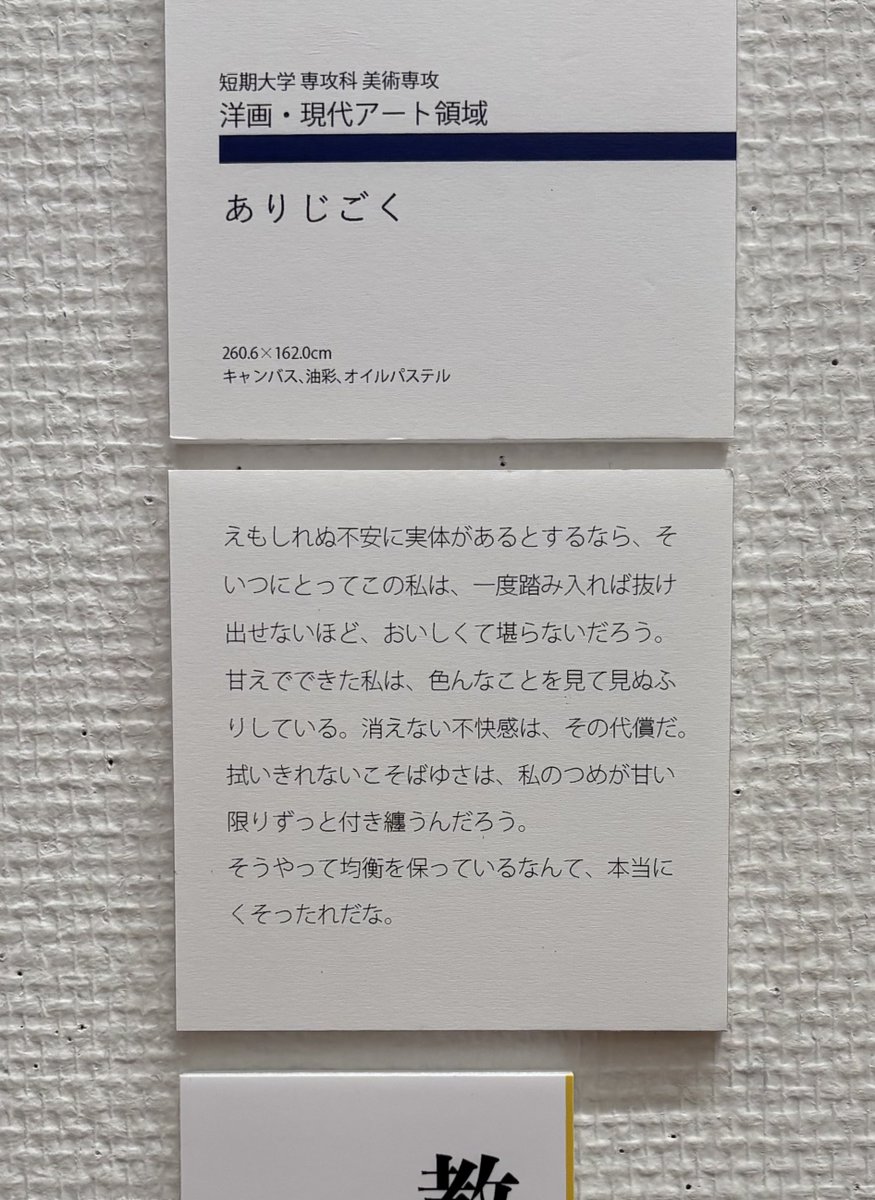 短期大学 専攻科 美術専攻
洋画・現代アート領域
ありじごく
260.6×162.0cm
キャンバス、油彩、オイルパステル
えもしれぬ不安に実体があるとするなら、そ
いつにとってこの私は、一度踏み入れば抜け
出せないほど、おいしくて堪らないだろう。
甘えでできた私は、色んなことを見て見ぬふ
りしている。消えない不快感は、その代償だ。
拭いきれないこそばゆさは、私のつめが甘い
限りずっと付き纏うんだろう。
そうやって均衡を保っているなんて、本当に
くそったれだな。
教